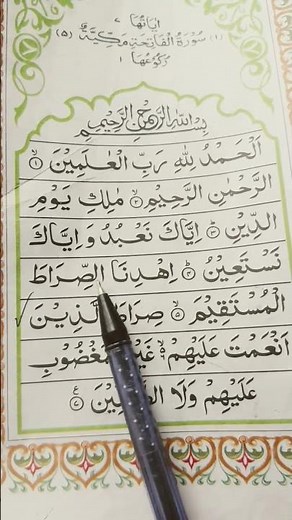 اٰيَاتُهَا ٧
(١) سُوْرَةُ الْفَاتِحَةِ مَكِّيَّةٌ (٥)
رُكُوْعُهَا ١
بِسْمِ اللّٰهِ الرَّحْمٰنِ الرَّحِيْمِ
اَلْحَمْدُ لِلّٰهِ رَبِّ الْعٰلَمِيْنَ ۝١
الرَّحْمٰنِ الرَّحِيْمِ ۝٢ مٰلِكِ يَوْمِ
الدِّيْنِ ۝٣ اِيَّاكَ نَعْبُدُ وَ اِيَّاكَ
نَسْتَعِيْنُ ۝٤ اِهْدِنَا الصِّرَاطَ
الْمُسْتَقِيْمَ ۝٥ صِرَاطَ الَّذِيْنَ
اَنْعَمْتَ عَلَيْهِمْ ۝٦ غَيْرِ الْمَغْضُوْبِ
عَلَيْهِمْ وَلَا ۝٧